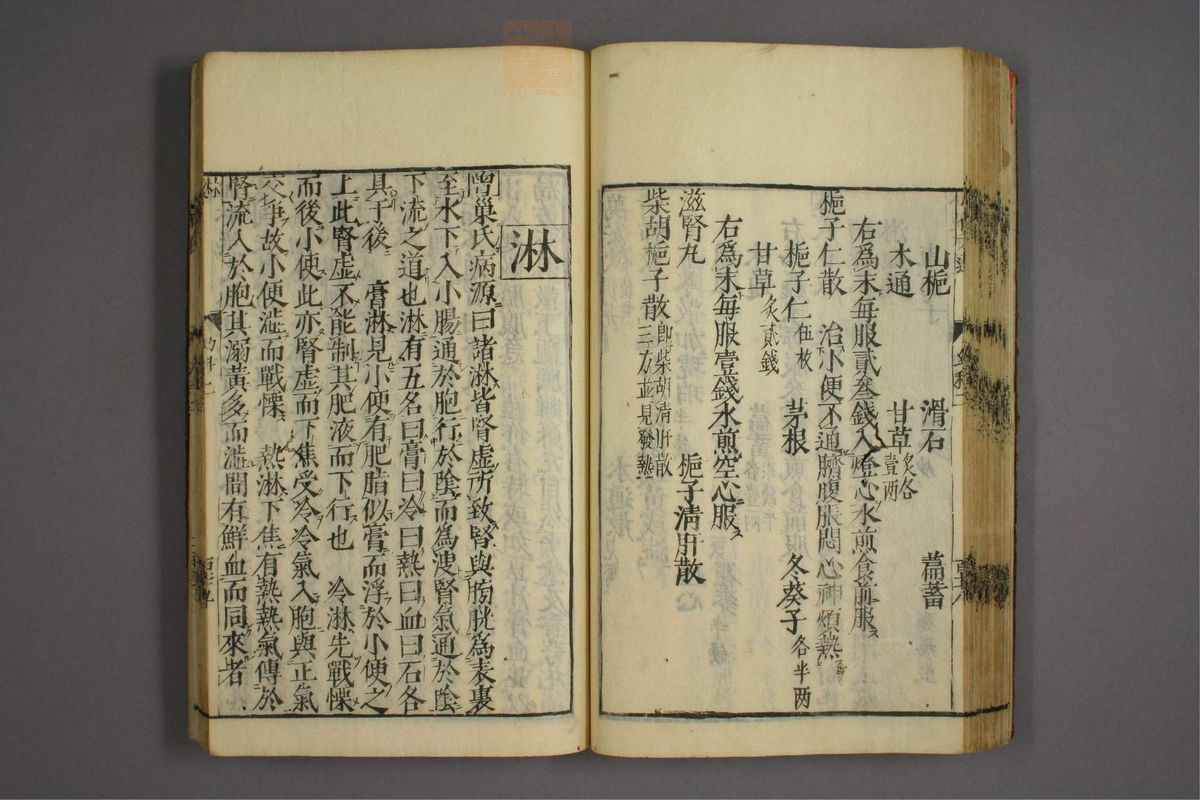 山梔 滑石 萹蓄
木通 甘草炙各壹兩
右爲末每服貳叁錢入燈心水煎食前服
梔子仁散 治小便不通臍腹脹悶心神煩熱
梔子仁伍枚 茅根 冬葵子各半两
甘草炙貳錢
右爲末每服壹錢水煎空心服
滋腎丸 梔子清肝散
柴胡梔子散即柴胡清肝散三方並見發熱
淋
巢氏病源曰諸淋皆腎虛所致腎與膀胱爲表裏
至水下入小腸通於胞行於陰而為溲腎氣通於陰
下流之道也淋有五名曰膏曰冷曰熱曰血曰石各
具于後 膏淋見小便有肥脂似膏而浮於小便之
上此腎虛不能制其肥液而下行也 冷淋先戰慄
而後小便此亦腎虛而下焦受冷冷氣入胞與正氣
交爭故小便澁而戰慄 熱淋下焦有熱熱氣傳於
腎流入於胞其溺黃多而澁間有鮮血而同來者